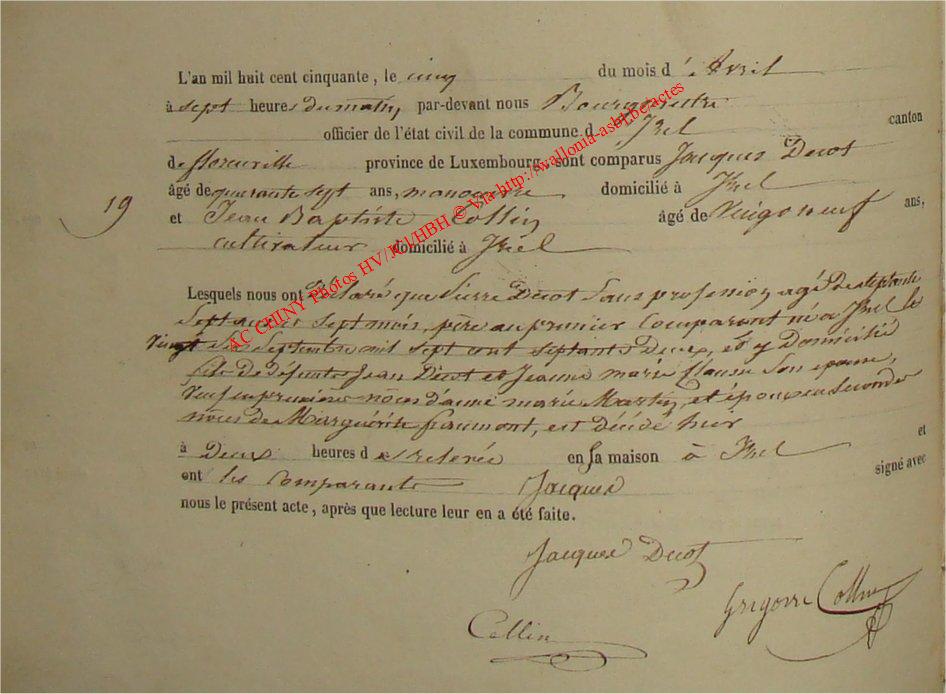 L'an mil huit cent cinquante, le cinq du mois d'Avril
à sept heures du matin, par-devant nous Bourgmestre
officier de l'état civil de la commune d'Izel canton
de florenville province de Luxembourg, sont comparus Jacques Decot
âgé de quarante sept ans, manoeuvre domicilié à Izel
19 et Jean Baptiste Collin âgé de Vingt neuf ans,
cultivateur domicilié à Izel
Lesquels nous ont déclaré que Pierre Decot Sans profession, agé de septante
Sept ans et sept mois, père au premier Comparant né à Izel le
Vingt six Septembre mil sept cent septante Deux, et y Domicilié
fils de défunts Jean Decot et Jeanne marie Son épouse,
Veuf en premières noces d'anne marie Martin, et époux en Secondes
noces de Marguérite fraumont, est Décédé hier
à Deux heures de relevée en sa maison à Izel et
ont les Comparants Jacques signé avec
nous le présent acte, après que lecture leur en a été faite.
Jacques Decot
Grégoire Collin
Collin
AC CHINY Photos HV/JCl/HBH © Via http://wallonia-asbl.be/actes